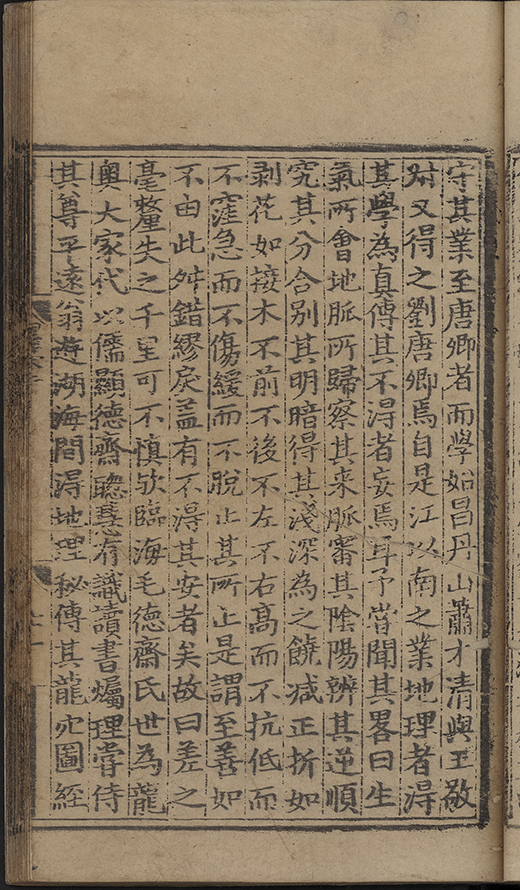 守其業至唐卿者而學始昌丹山蕭才清與王敬
又得之劉唐卿焉自是江以南之業地理者得
其學為真傳其不得者妄焉耳予嘗聞其畧曰生
氣所會地脈所歸察其来脈審其陰陽辨其逆順
究其分合别其明暗得其淺深為之饒减正折如
剥花如接木不前不後不左不右高而不抗低而
不窪急而不傷緩而不脫止其所止是謂至善如
不由此舛錯繆戾盖有不得其安者矣故曰差之
毫釐失之千里可不慎欤臨海毛德齋氏世為龍
奥大家代以儒顯德齋聰慧有識讀書爥理嘗侍
其尊平遠翁遊湖海間得地理秘傳其龍穴圖經